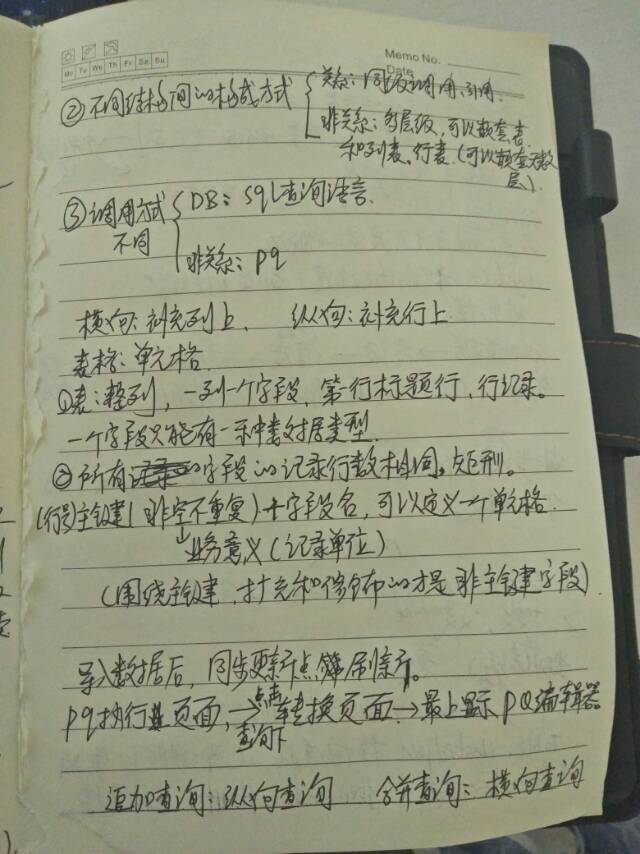 Mo Tu We Th Fr Sa Su
Memo No.
Date
②不同结构间的构成方式
关系:同级调用、引用.
非关系:多层级,可以嵌套表
和列表、行表.(可以嵌套无数
层).
③调用方式
不同
DB:sql查询语言.
非关系:pq
横向:补充列上、 纵向:补充行上
表格:单元格.
①表:整列,一列一个字段,第一行标题行,行记录。
一个字段只能有一种数据类型.
②所有的字段的记录行数相同。矩形。
(行号)主键(非空不重复)+字段名,可以定义一个单元格.
↓业务意义(记录单位)
(围绕主键,扩充和修饰的才是非主键字段)
导入数据后,同步更新点刷新。
pq执行页面,→点击查询下 转换页面→最上显示PQ编辑器
追加查询:纵向查询 合并查询:横向查询
).